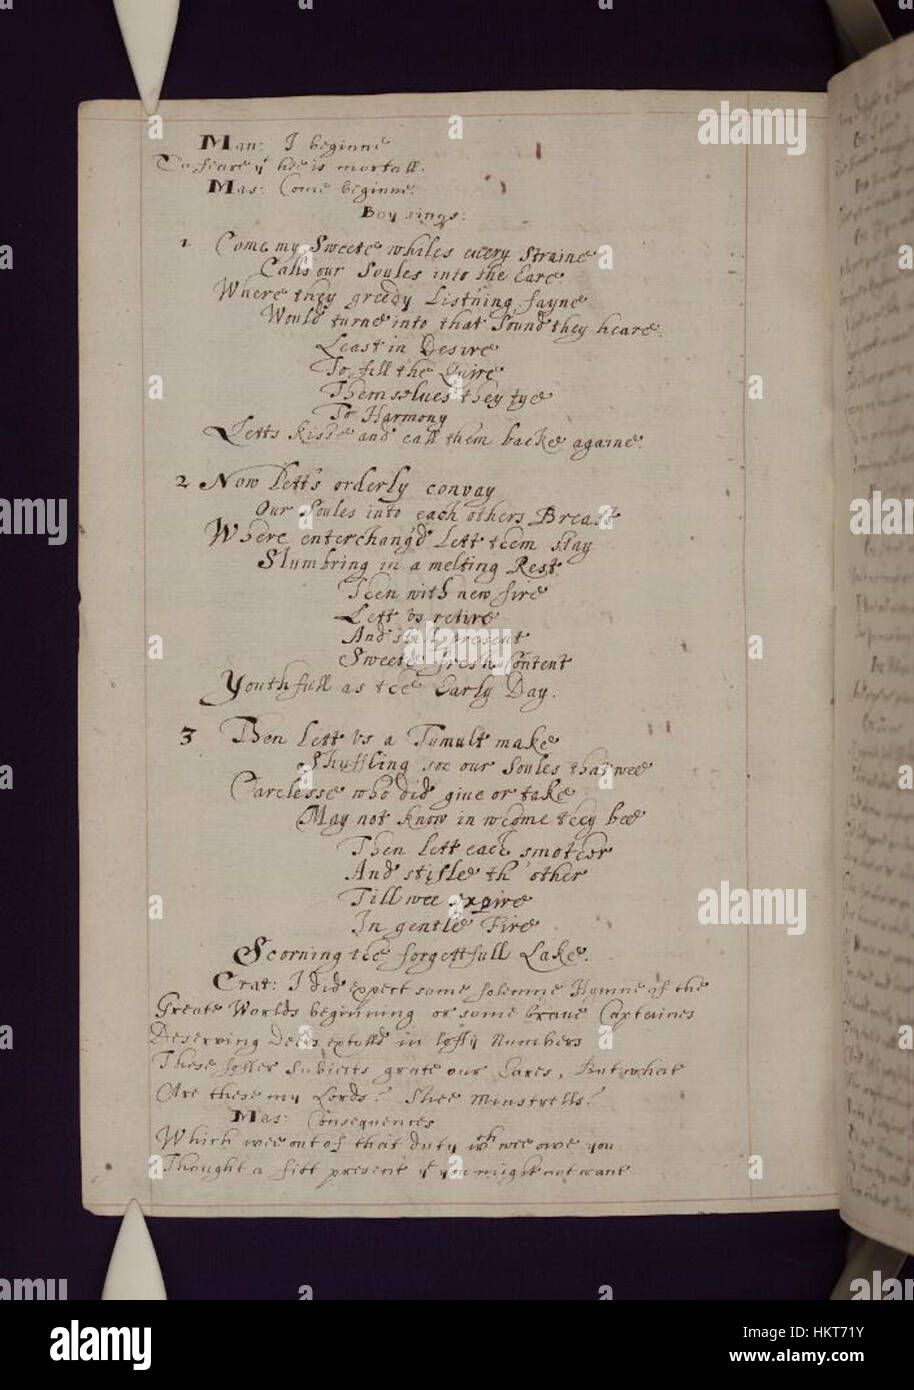 Man: I beginne
To feare yt hee is mortall.
Mas: Come beginne.
Boy sings.
1 Come my Sweete whiles euery straine
Calls our Soules into the Eare
Where they greedy Listning fayne
Would turne into that Sound they heare.
Least in Desire
To fill the Quire
Themselues they tye
To Harmony
Letts kisse and call them backe againe.
2 Now Letts orderly convay
Our Soules into each others Breast
Where enterchang'd Lett them stay
Slumbring in a melting Rest
Then with new fire
Lett vs retire
And still present
Sweete fresh Content
Youthfull as the Early Day.
3 Then Lett vs a Tumult make
Shuffling soe our Soules that wee
Carelesse who did giue or take
May not know in whome they bee
Then lett each smother
And stifle th' other
Till wee expire
In gentle Fire
Scorning the forgettfull Lake.
Crat: I did expect some solemne Hymne of the
Greate Worlds beginning or some braue Captaines
Deserving Deeds extolld in lofty Numbers
These softer Subiects grate our Eares, But what
Are these my Lords? Shee minstrells?
Mas: Consequences
Which wee out of that duty wch wee owe you
Thought a fitt present yt you might not want
alamy
alamy stock photo
HKT71Y
www.alamy.com